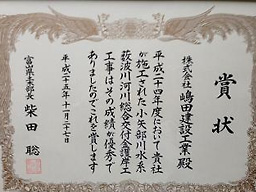 賞状
株式会社
嶋田建設工業 殿
平成二十四年度において貴社
が施工された小矢部川水系
荻波川河川総合交付金護岸工
工事はその成績が優秀で
ありましたのでこれを賞します
平成二十五年十一月二十七日
富山県土木部長 柴田 聡